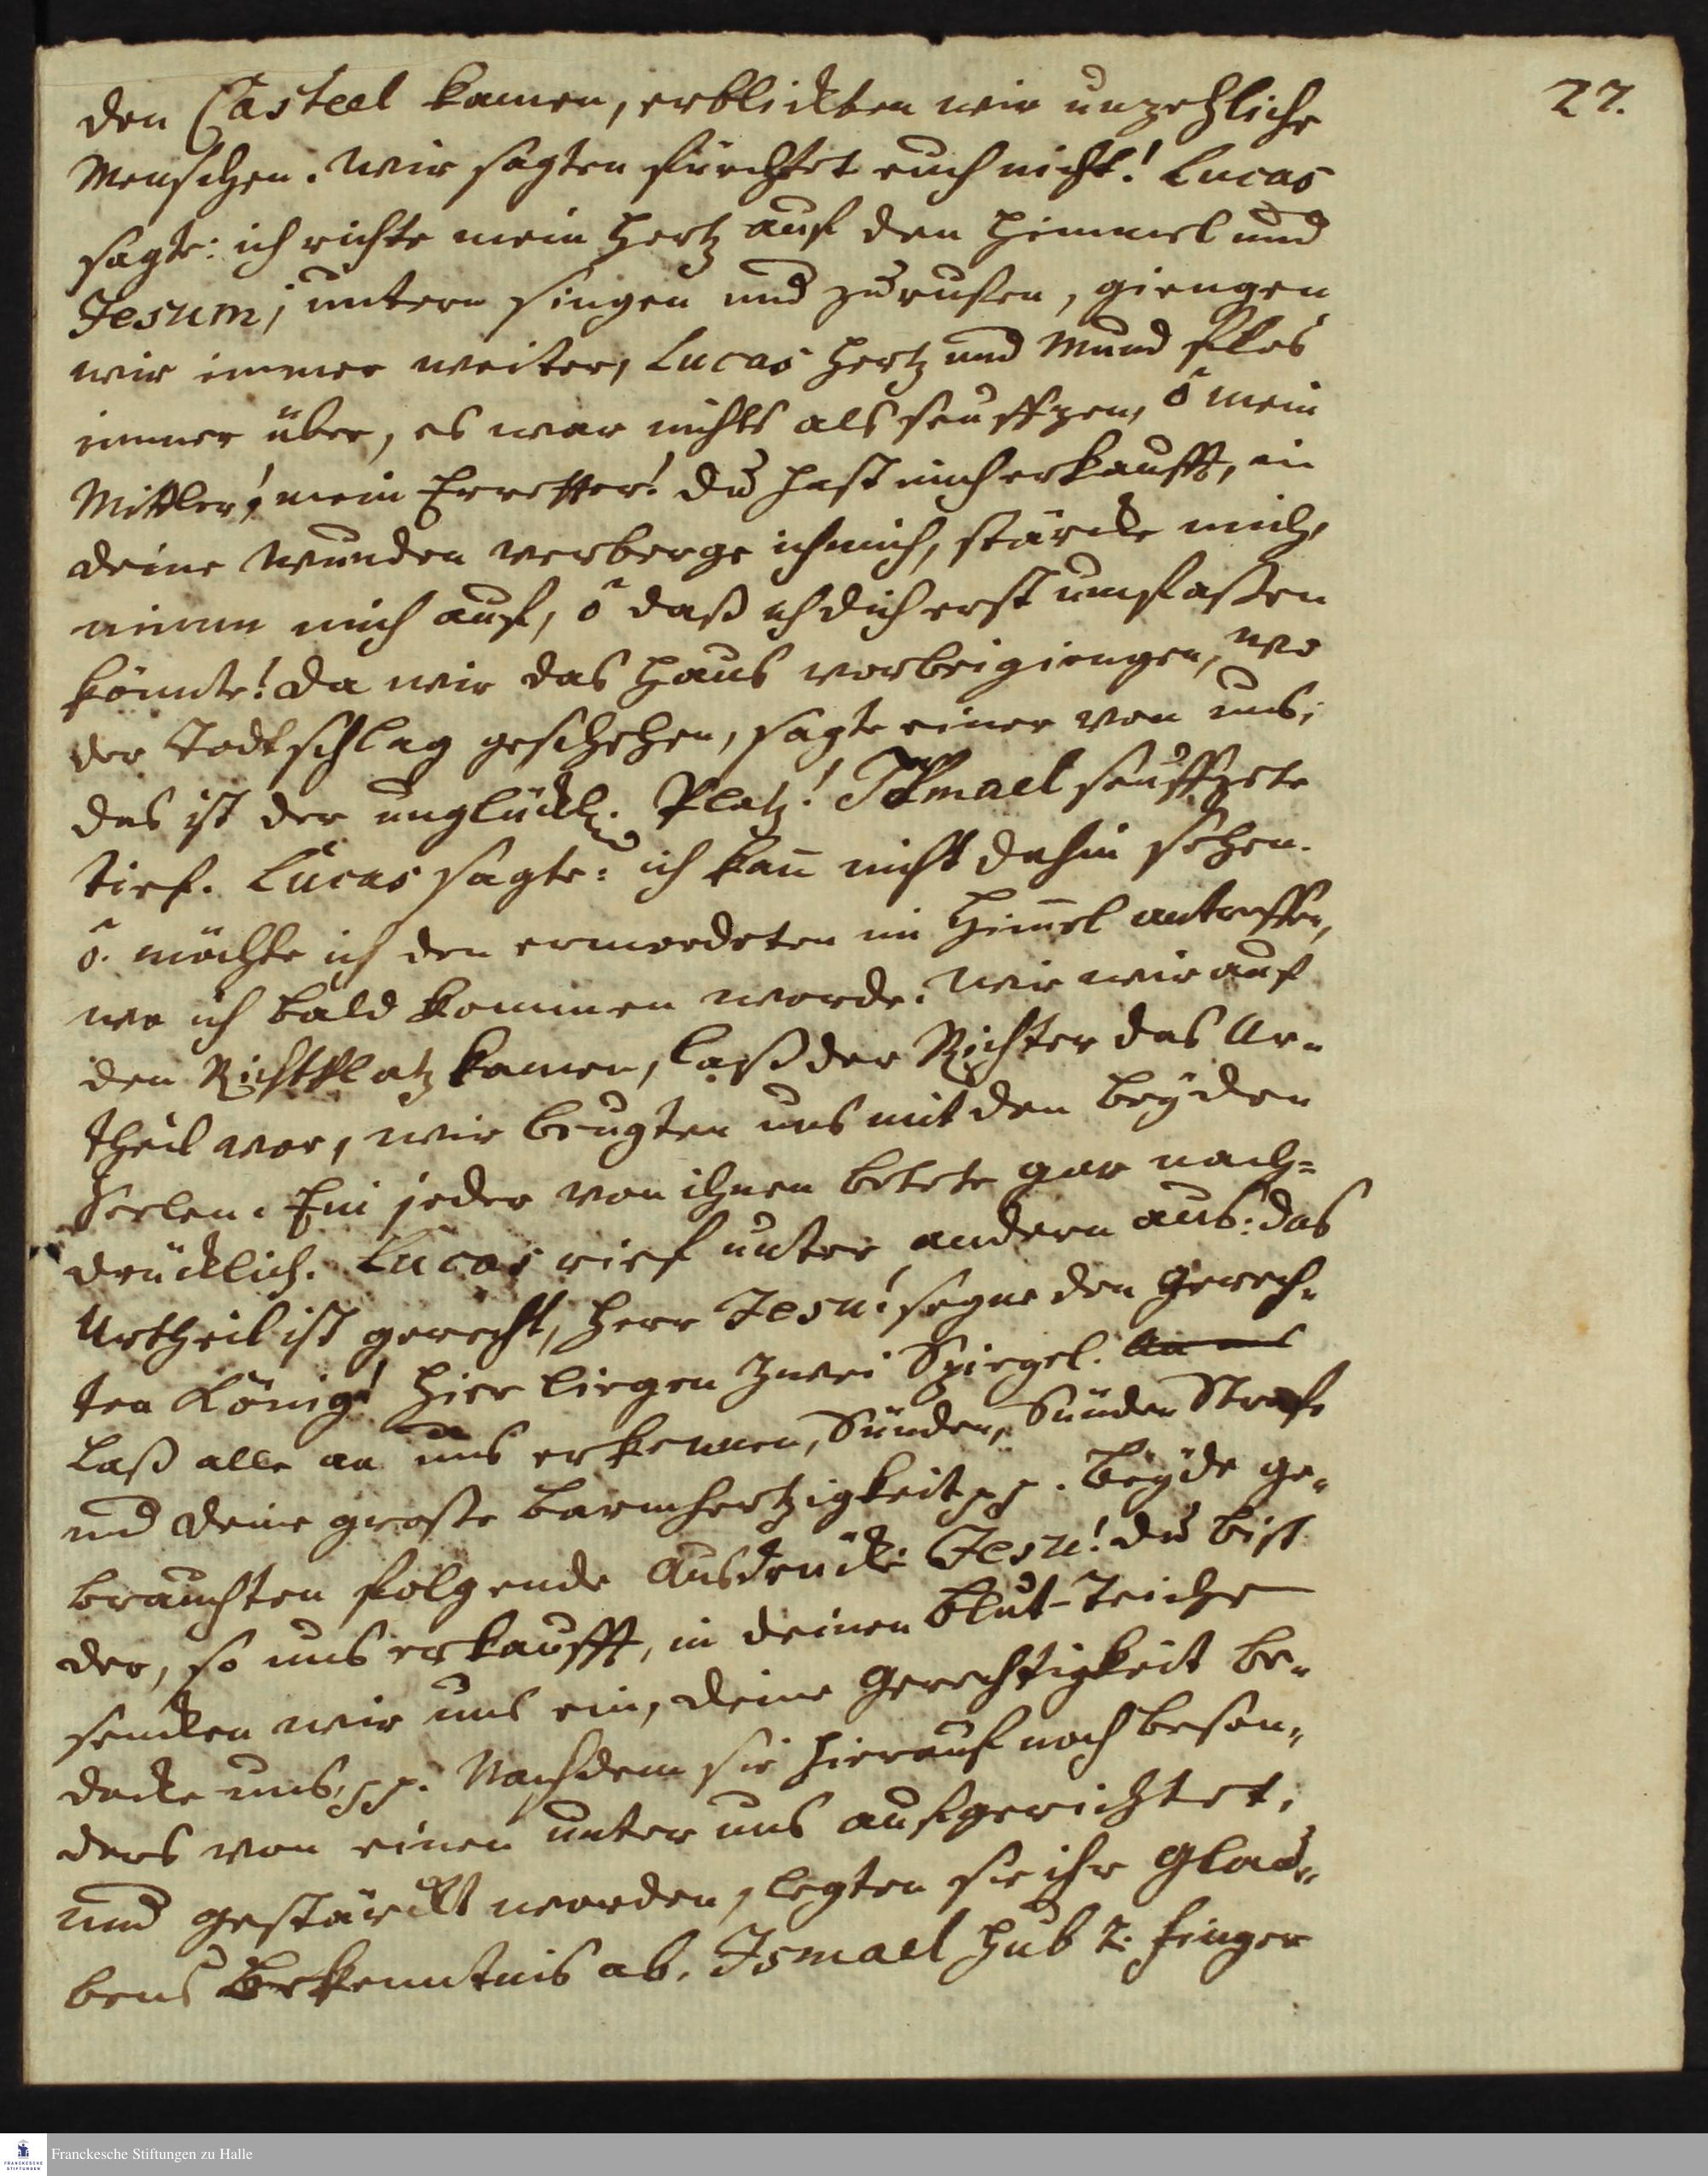 27.
den Casteel kamen, erblickten wir unzehliche
Menschen. Wir sagten fürchtet euch nicht! Lucas
sagte: ich richte mein Hertz auf den Himmel und
Jesum; untern singen und zurufen, giengen
wir immer weiter, Lucas Hertz und Mund flos
immer über, es war nichts als seuffzen, ô mein
Mittler! mein Erretter! du hast mich erkaufft, in
deine Wunden verberge ich mich, stärcke mich,
nimm mich auf, ô daß ich dich erst umfaßen
könnte! Da wir das Haus vorbeigiengen, wo
der Todtschlag geschehen, sagte einer von uns;
das ist der unglückl. Platz! Ismael seuffzete
tief. Lucas sagte: ich kan̄ nicht dahin sehen.
ô. möchte ich den ermordeten im Him̄el antreffen,
wo ich bald kommen werde. Wie wir auf
den Richtplatz kamen, laß der Richter das Ur-
theil vor, wir beugten uns mit den beyden
Seelen. Ein jeder von ihnen betete gar nach-
drücklich. Lucas rief unter andern aus: das
Urtheil ist gerecht, Herr Jesu! segne den Gerech-
ten König! hier liegen zwei Spiegel. An uns
Laß alle an uns erkennen, Sünden, Sünden Strafe
und deine große Barmhertzigkeit pp. Beyde ge-
brauchten folgende Ausdrücke Jesu! du bist
der, so uns erkaufft, in deinen Blut-Teiche
sencken wir uns ein, deine Gerechtigkeit be-
decke uns, pp. Nachdem sie hierauf noch beson-
ders von einen unter uns aufgerichtet,
und gestärckt worden, legten sie ihr Glau-
bens Bekenntnis ab. Ismael hub 2. Finger
Franckesche Stiftungen zu Halle